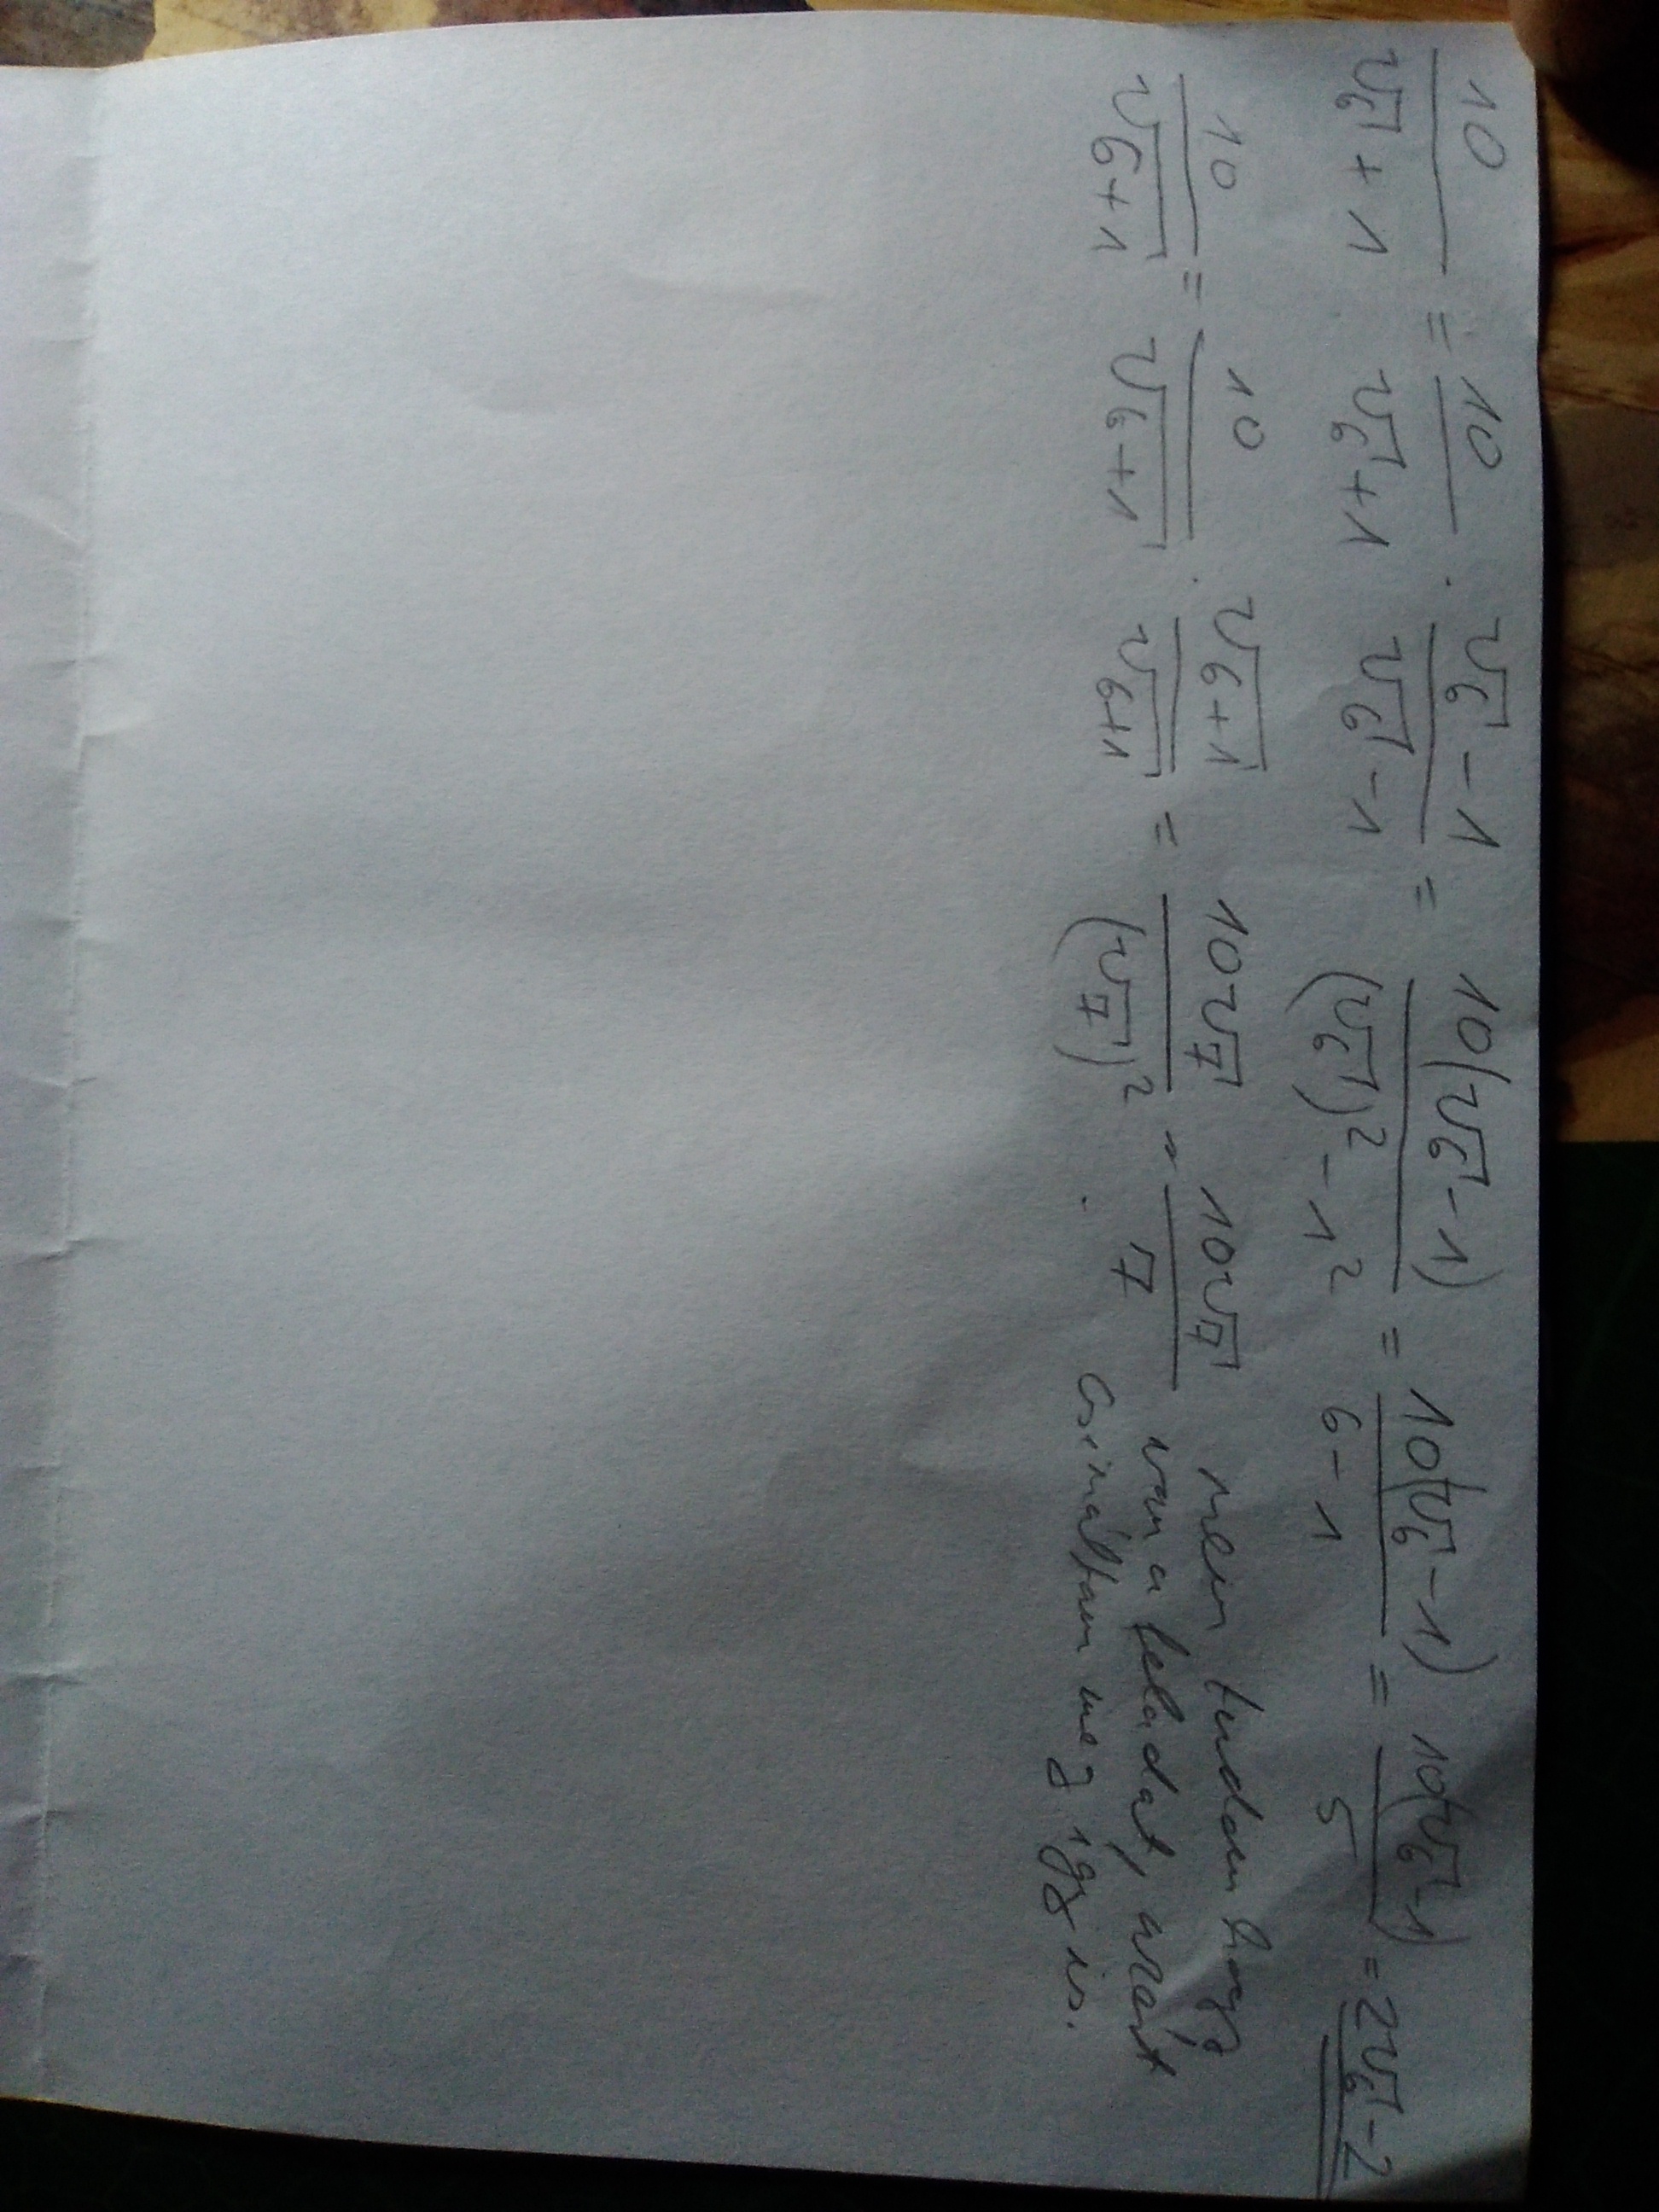 10/(√6 + 1) = 10/(√6 + 1) · (√6 - 1)/(√6 - 1) = 10(√6 - 1)/((√6)² - 1²) = 10(√6 - 1)/(6 - 1) = 10(√6 - 1)/5 = 2√6 - 2
10/√(6+1) = 10/√(6+1) · √(6+1)/√(6+1) = 10√7/(√7)² = 10√7/7
nem tudom hogy
van a feladat, azért
csináltam meg így is.